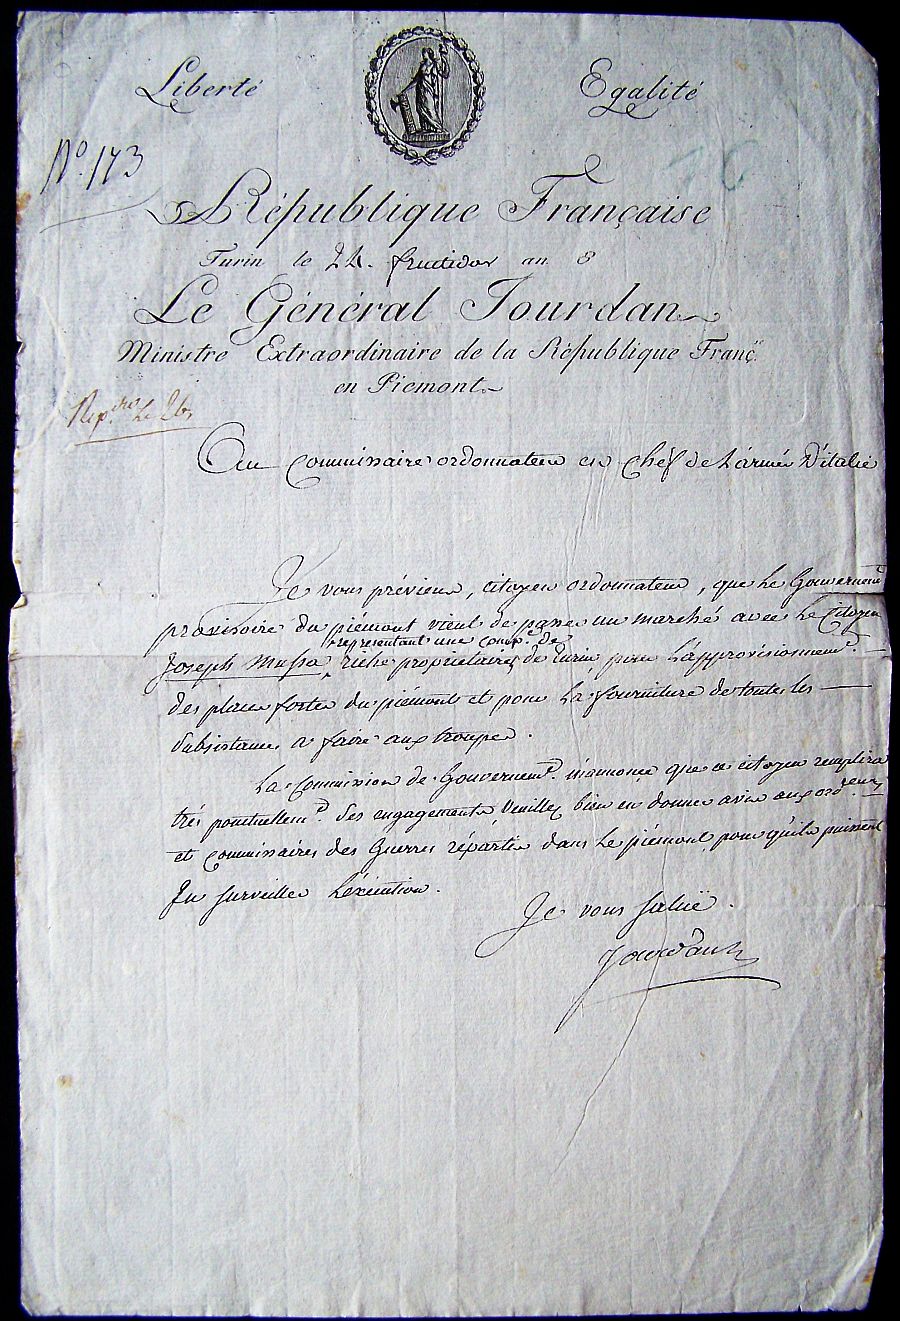 Liberté
Egalité
N.º 173
76
République Française
Turin le 24. fructidor an 8
Le Général Jourdan
Ministre Extraordinaire de la République Franç.
en Piemont
Rep. le 26
Au Commissaire ordonnateur en chef de L'armée D'italie
Je vous préviens, citoyen ordonnateur, que Le Gouvernem.t
provisoire du piémont vient de passer un marché avec Le Citoyen
representant une comp.e de
Joseph Mussa, riches proprietaires de Turin pour L'approvisionnem.t
des places fortes du piémont et pour La fourniture de toutes les
Subsistances a faire aux troupes.
La Commission de Gouvernem.t m'annonce que ce citoyen remplira
trés ponctuellem.t ses engagements Veuillez bien en donner avis aux ord.eurs
et commissaires des Guerres répartis dans Le piémont, pour qu'ils puissent
En surveiller L'éxécution.
Je vous Saluë.
Jourdan